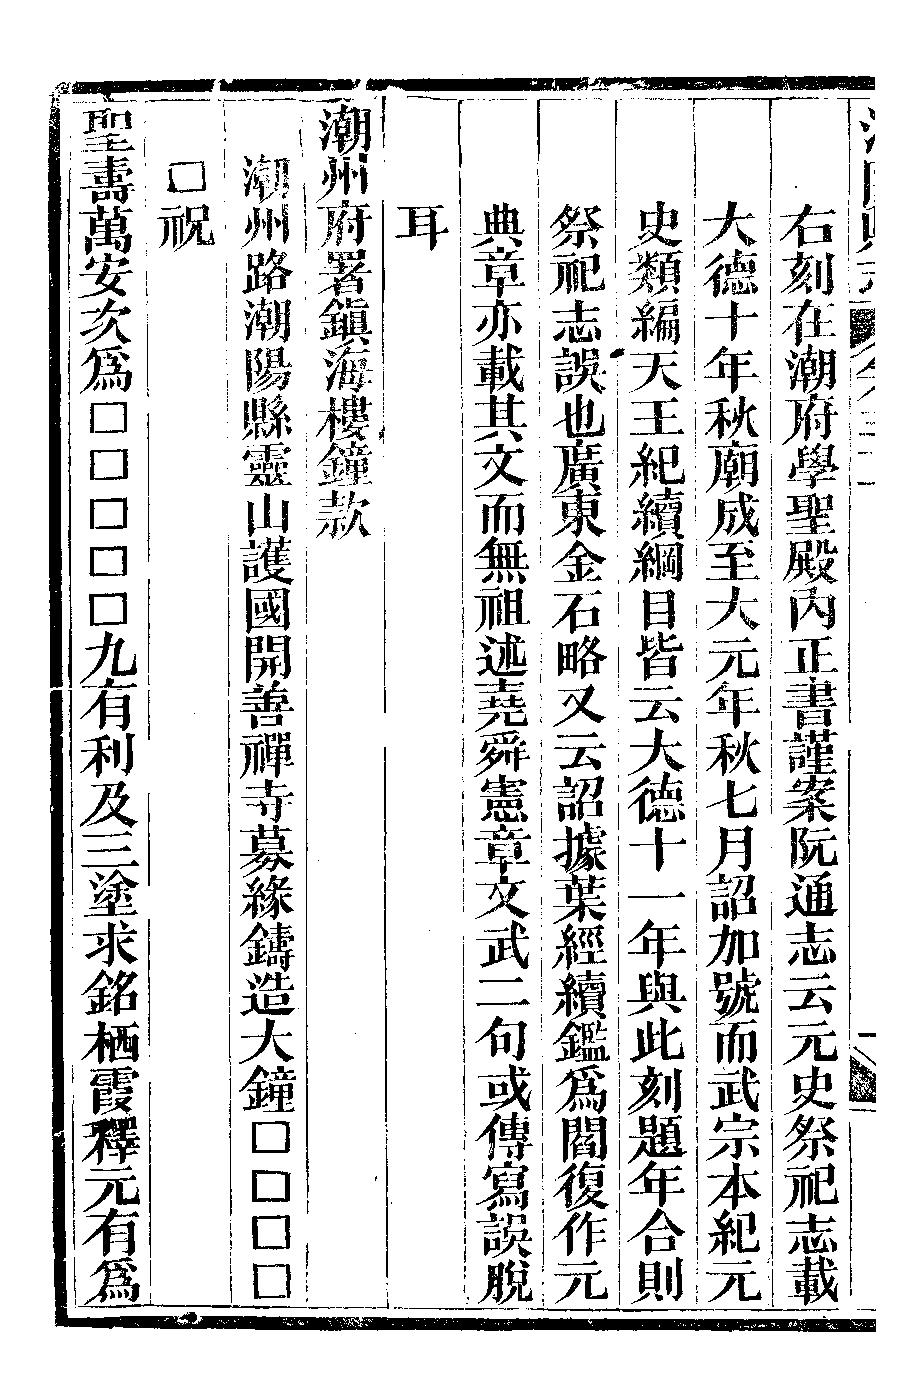 右刻在潮府學聖殿內正書謹案阮通志云元史祭祀志載
大德十年秋廟成至大元年秋七月詔加號而武宗本紀元
史類編天王紀續綱目皆云大德十一年與此刻題年合則
祭祀志誤也廣東金石略又云詔據葉經續鑑爲閻復作元
典章亦載其文而無祖述堯舜憲章文武二句或傳寫誤脫
耳
潮州府署鎮海樓鐘款
潮州路潮陽縣靈山護國開善禪寺募緣鑄造大鐘□□□□
□祝
聖壽萬安次爲□□□□□九有利及三塗求銘栖霞釋元有爲